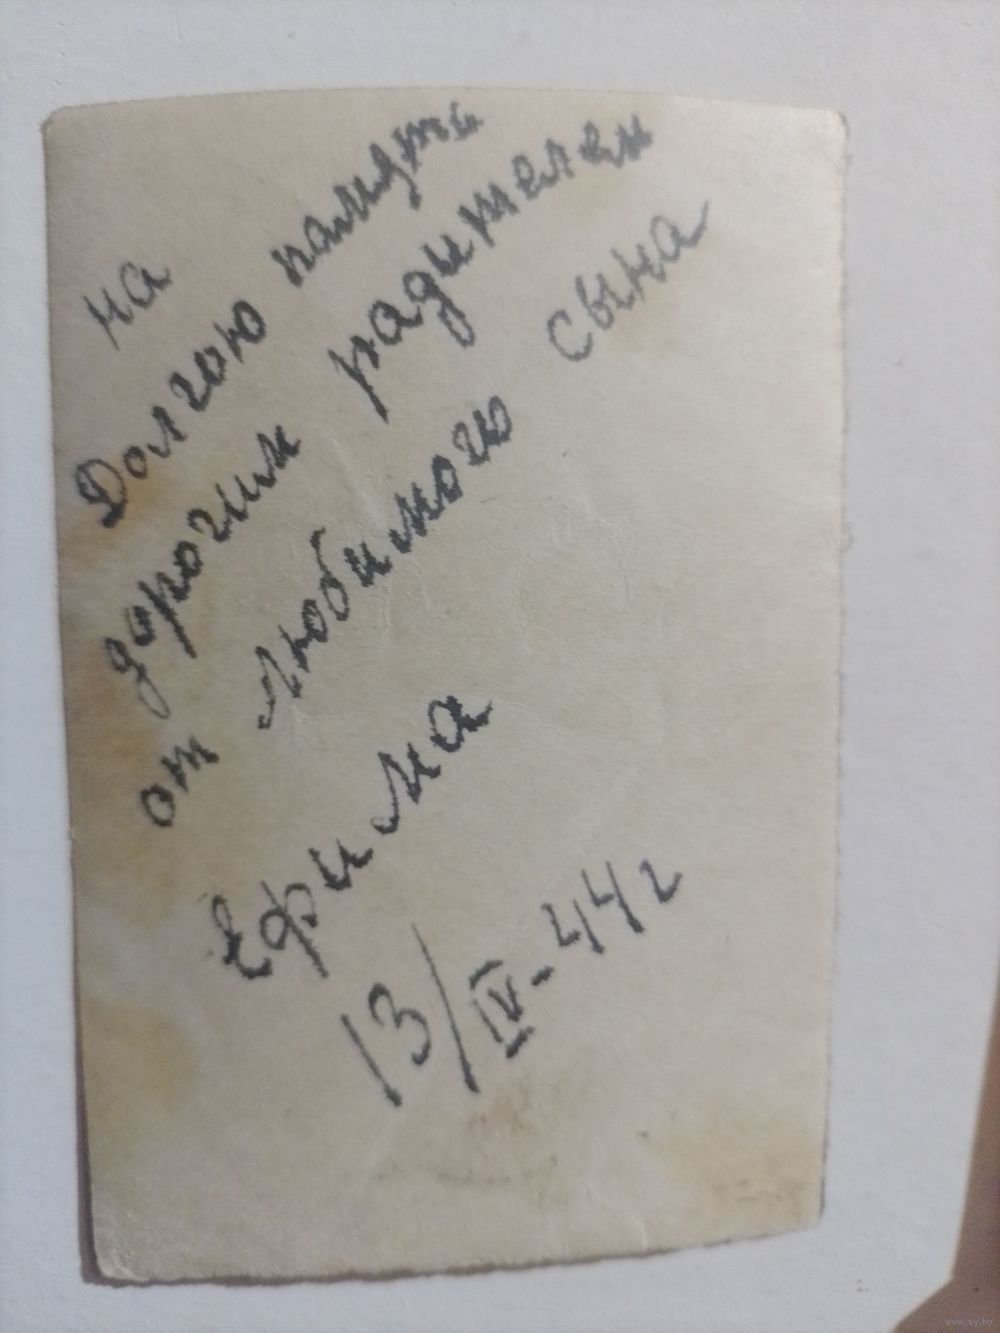 на
Долгою память
дорогим радителем
от любимого сына
Ефима
13/IV-44г
www.ay.by